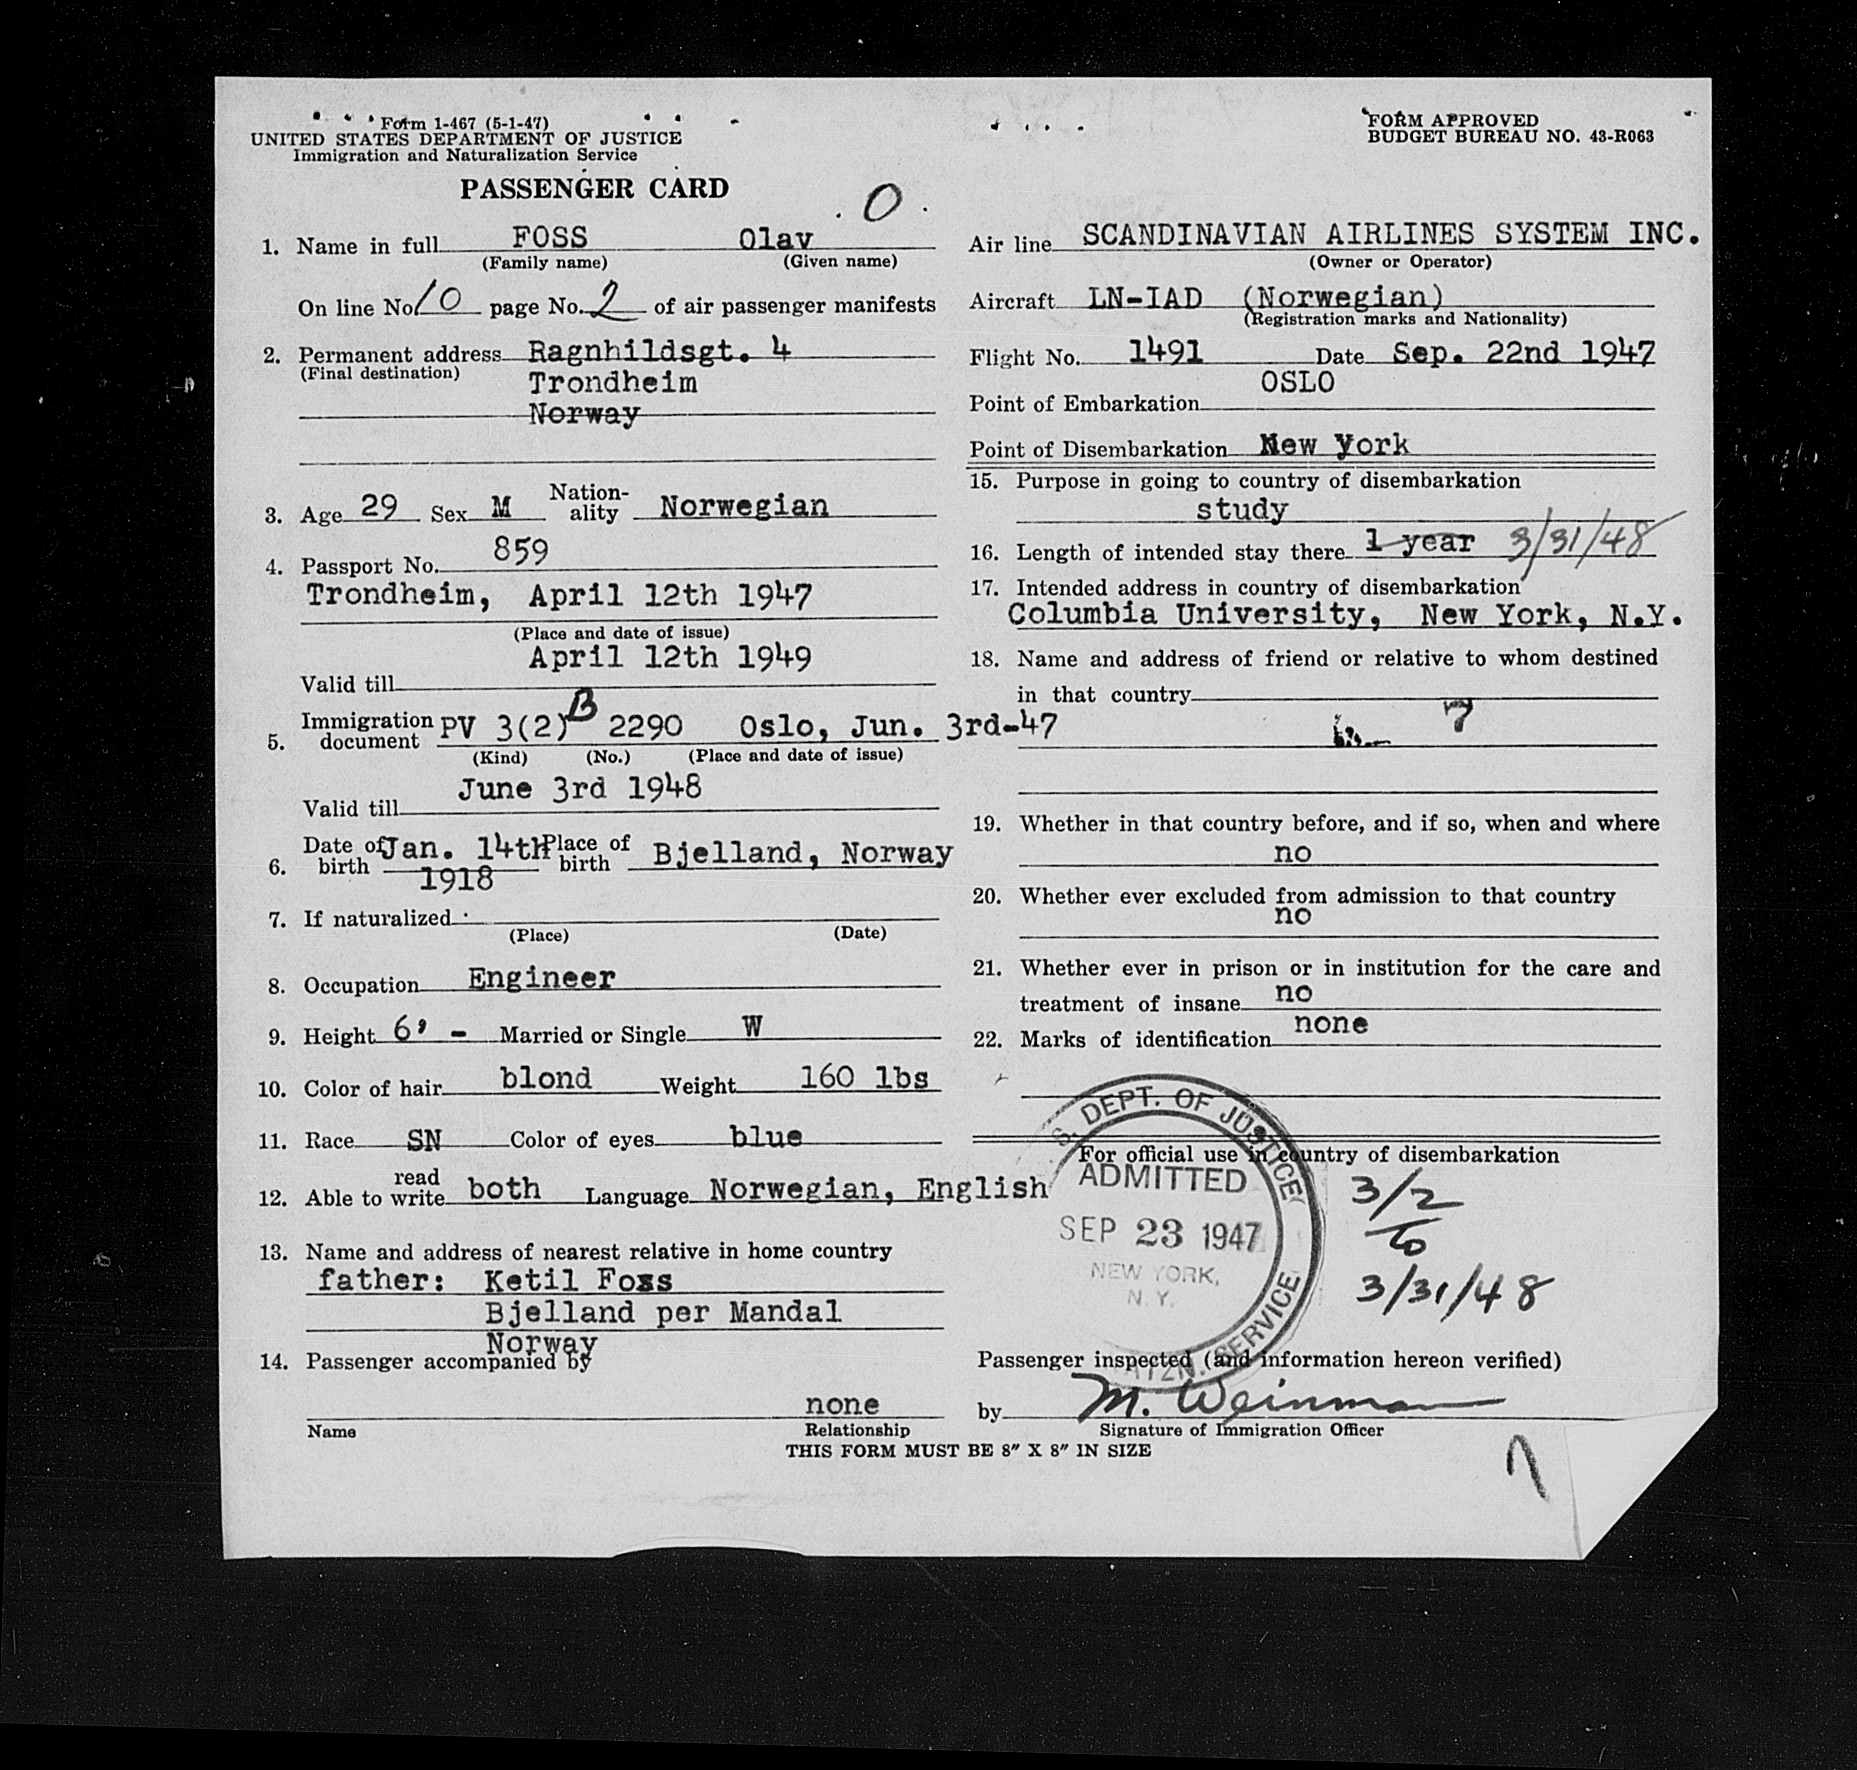 Form I-467 (5-1-47)
UNITED STATES DEPARTMENT OF JUSTICE
Immigration and Naturalization Service
PASSENGER CARD
O
1. Name in full FOSS Olav
(Family name) (Given name)
On line No. 10 page No. 2 of air passenger manifests
2. Permanent address Ragnhildsgt. 4
(Final destination)
Trondheim
Norway
3. Age 29 Sex M Nation-
ality Norwegian
4. Passport No. 859
Trondheim, April 12th 1947
(Place and date of issue)
April 12th 1949
Valid till
5. Immigration document PV 3(2) B 2290 Oslo, Jun. 3rd-47
(Kind) (No.) (Place and date of issue)
June 3rd 1948
Valid till
6. Date of birth Jan. 14th 1918 Place of birth Bjelland, Norway
7. If naturalized
(Place) (Date)
8. Occupation Engineer
9. Height 6' - Married or Single W
10. Color of hair blond Weight 160 lbs
11. Race SN Color of eyes blue
12. Able to read write both Language Norwegian, English
13. Name and address of nearest relative in home country
father: Ketil Foss
Bjelland per Mandal
Norway
14. Passenger accompanied by
none
Name Relationship
FORM APPROVED
BUDGET BUREAU NO. 43-R063
Air line SCANDINAVIAN AIRLINES SYSTEM INC.
(Owner or Operator)
Aircraft LN-IAD (Norwegian)
(Registration marks and Nationality)
Flight No. 1491 Date Sep. 22nd 1947
OSLO
Point of Embarkation
Point of Disembarkation New York
15. Purpose in going to country of disembarkation
study
16. Length of intended stay there 1 year 3/31/48
17. Intended address in country of disembarkation
Columbia University, New York, N.Y.
18. Name and address of friend or relative to whom destined
in that country
7
19. Whether in that country before, and if so, when and where
no
20. Whether ever excluded from admission to that country
no
21. Whether ever in prison or in institution for the care and
treatment of insane no
22. Marks of identification none
For official use in country of disembarkation
S. DEPT. OF JUSTICE
ADMITTED
SEP 23 1947
NEW YORK,
N.Y.
SERVICE
3/2
to
3/31/48
Passenger inspected (and information hereon verified)
by M. Weinman
Signature of Immigration Officer
THIS FORM MUST BE 8" X 8" IN SIZE